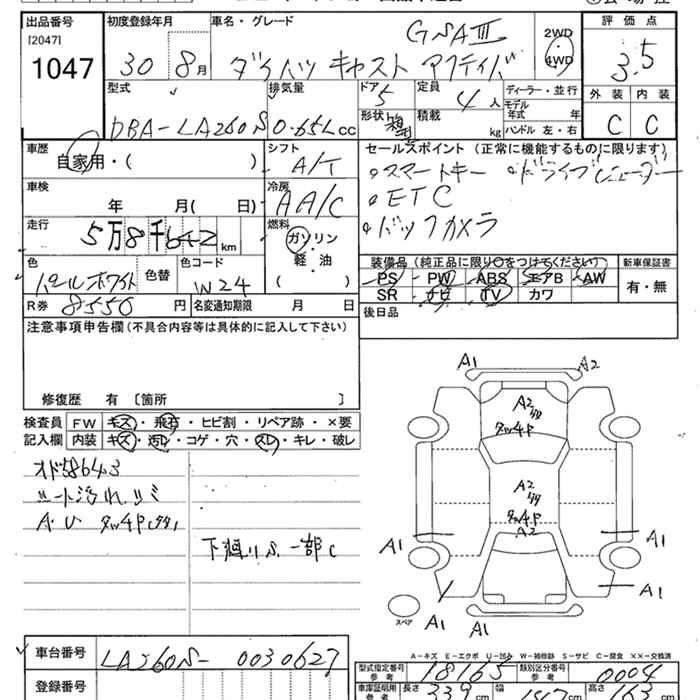 出品番号
[2047]
1047
初度登録年月
30 8月
車名・グレード
GSAⅢ
ダイハツ キャスト アクティバ
2WD
・
4WD
評価点
3.5
外装 内装
C C
型式
DBA-LA260S
排気量
0.65L cc
ドア
5
定員
4人
形状
積載
kg
ディーラー・並行
モデル
年式 年
ハンドル 左・右
車歴
自家用・( )
シフト
A/T
セールスポイント (正常に機能するものに限ります)
・スマートキー ・ドライブレコーダー
・ETC
・バックカメラ
車検
年 月( 日)
冷房
AA/C
走行
5万8千642km
燃料
ガソリン
・
軽・油
( )
色
パールホワイト
色替
色コード
W24
装備品 (純正品に限り○をつけてください)
PS PW ABS エアB AW
SR ナビ TV カワ
新車保証書
有・無
R券 8550円
名変通知期限 月 日
後日品
注意事項申告欄(不具合内容等は具体的に記入して下さい)
修復歴 有 〔箇所 〕
検査員
記入欄
FW キズ・飛石・ヒビ割・リペア跡・×要
内装 キズ・汚れ・コゲ・穴・スレ・キレ・破レ
オド58643
シート汚れ、シミ
A.U タw4P
下廻りS 一部C
A1 A2
A2
タw4P
A2
タw4P
A2
A1 A1
A1
A1 A1
スペア
A-キズ E-エクボ U-凹み W-補修跡 S-サビ C-腐食 XX-交換済
車台番号 LA260S-0030627
登録番号
型式指定番号
参考
18165
類別区分番号
参考
0004
車庫証明用
参考
長さ 339cm
幅 147cm
高さ 163cm